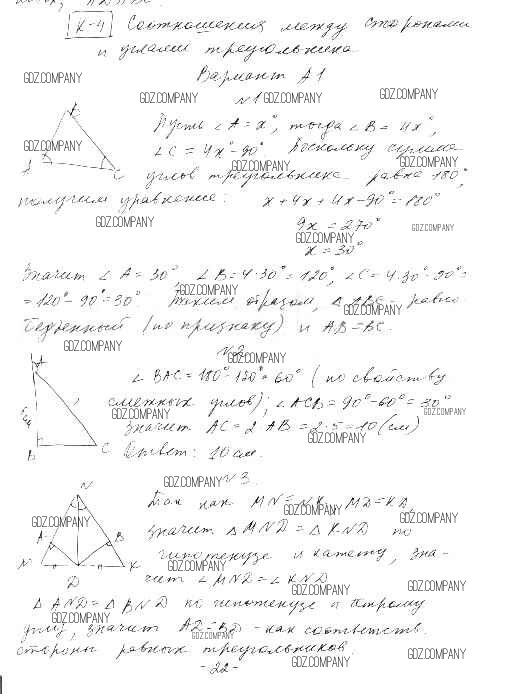 К-4 Соотношения между сторонами
и углами треугольника
Вариант А1
№1
Пусть ∠A = x°, тогда ∠B = 4x°,
∠C = 4x° - 90° Поскольку сумма
углов треугольника равна 180°,
получим уравнение: x + 4x + 4x - 90° = 180°
9x = 270°
x = 30°
Значит ∠A = 30° ∠B = 4·30° = 120°, ∠C = 4·30° - 90° =
= 120° - 90° = 30° Таким образом, △ABC - равно-
бедренный (по признаку) и AB = BC.
№2
∠BAC = 180° - 120° = 60° (по свойству
смежных углов); ∠ACB = 90° - 60° = 30°
Значит AC = 2 AB = 2·5 = 10 (см)
Ответ: 10 см.
№3.
Так как MN = NK, MD = KD,
значит △MND = △KND по
гипотенузе и катету, зна-
чит ∠MND = ∠KND
△AND = △BND по гипотенузе и острому
углу, значит AD = BD - как соответств.
стороны равных треугольников.
-22-
GDZ.COMPANY